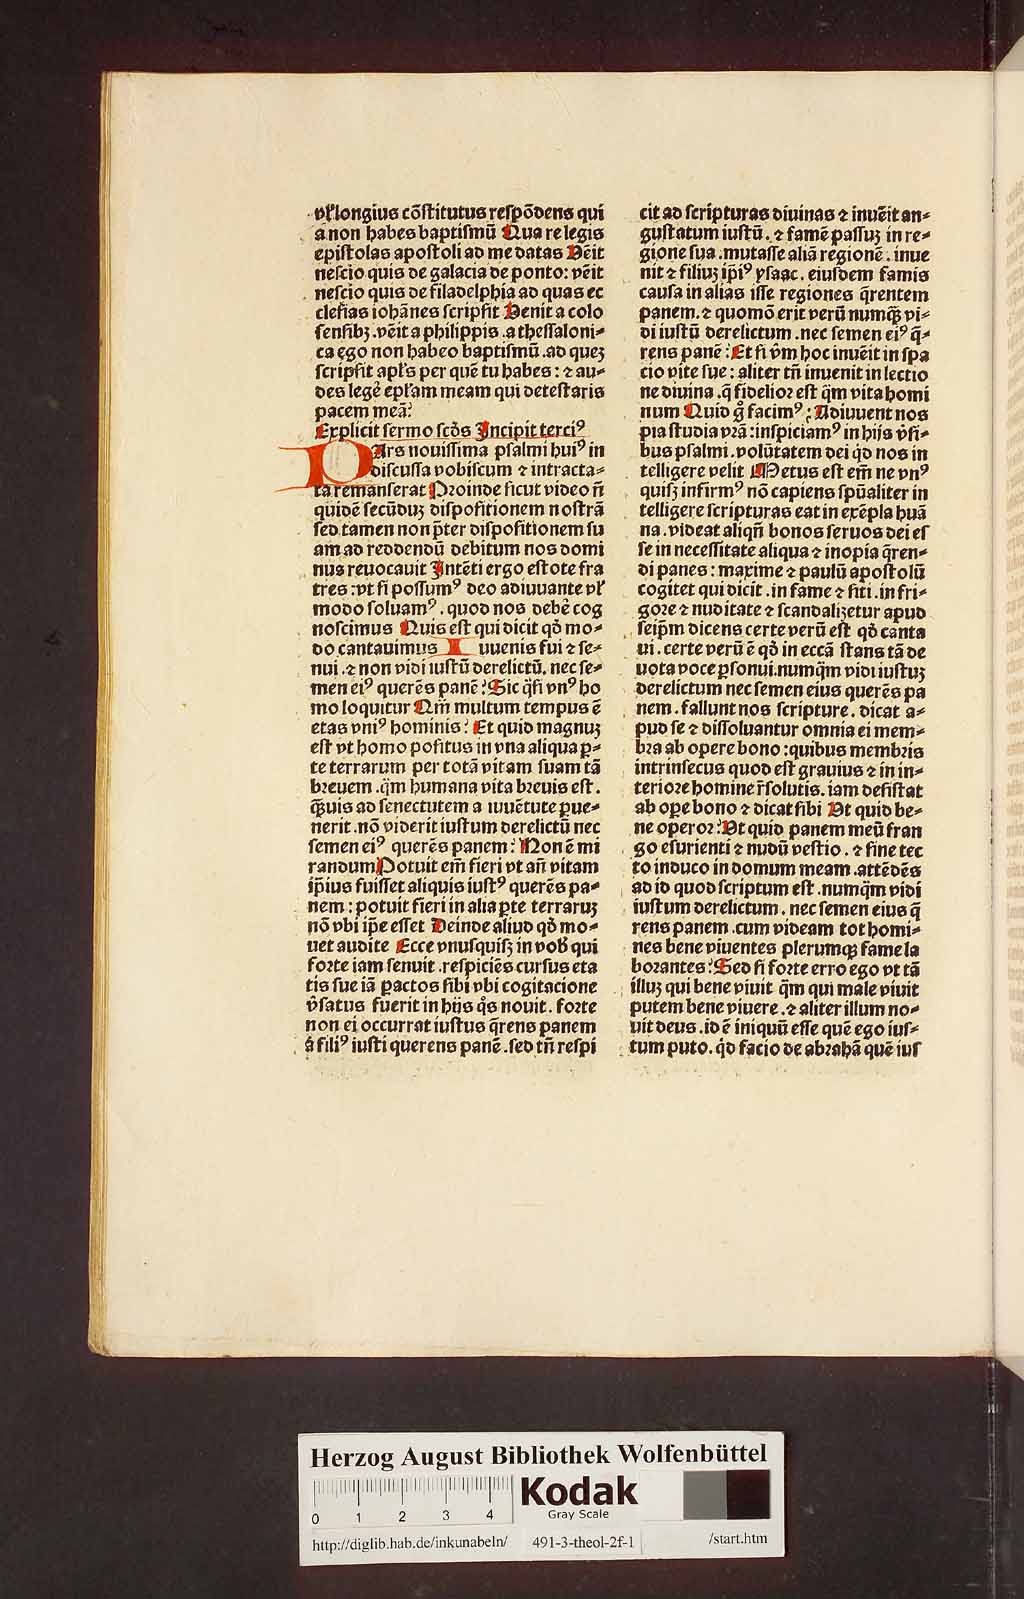 vł longius cōſtitutus reſpōdens qui
a non habes baptiſmū Qua re legis
epiſtolas apoſtoli ad me datas Uēit
neſcio quis de galacia de ponto: vēit
neſcio quis de filadelphia ad quas ec
cleſias iohānes ſcripſit Uenit a colo
ſenſibꝫ .vēit a philippis .a theſſaloni⸗
ca ego non habeo baptiſmū .ad queꝫ
ſcripſit apl's per quē tu habes : ⁊ au⸗
des legē epłam meam qui deteſtaris
pacem meā?
Explicit ſermo ſcd̄s Incipit terciꝰ
PArs nouiſſima pſalmi huiꝰ in
diſcuſſa vobiſcum ⁊ intracta⸗
ta remanſerat Proinde ſicut video n̄
quidē ſecūduꝫ diſpoſitionem noſtrā
ſed tamen non p̄ter diſpoſitionem ſu
am ad reddendū debitum nos domi
nus reuocauit Intēti ergo eſtote fra
tres :vt ſi poſſumꝰ deo adiuuante vł
modo ſoluamꝰ . quod nos debē cog
noſcimus Quis eſt qui dicit qd̄ mo⸗
do cantauimus Iuuenis fui ⁊ ſe⸗
nui .⁊ non vidi iuſtū derelictū. nec ſe⸗
men eiꝰ querēs panē? Sic q̄ſi vnꝰ ho
mo loquitur Qm̄ multum tempus ē
etas vniꝰ hominis? Et quid magnuꝫ
eſt vt homo poſitus in vna aliqua p̱⸗
te terrarum per totā vitam ſuam tā
breuem .q̄m humana vita breuis eſt .
q̄uis ad ſenectutem a iuuētute ꝑue⸗
nerit .nō viderit iuſtum derelictū nec
ſemen eiꝰ querēs panem? Non ē mi
randum Potuit em̄ fieri vt an̄ vitam
ip̄ius fuiſſet aliquis iuſtꝰ querēs pa⸗
nem : potuit fieri in alia ꝑte terraruꝫ
nō vbi ip̄e eſſet Deinde aliud qd̄ mo⸗
uet audite Ecce vnuſquiſꝫ in vob̄ qui
forte iam ſenuit .reſpiciēs curſus eta
tis ſue iā ꝑactos ſibi vbi cogitacione
v̄ſatus fuerit in hijs q̊s nouit . forte
non ei occurrat iuſtus q̄rens panem
a̅ filiꝰ iuſti querens panē .ſed tn̄ reſpi
cit ad ſcripturas diuinas ⁊ inuēit an⸗
guſtatum iuſtū . ⁊ famē paſſuꝫ in re⸗
gione ſua .mutaſſe aliā regionē . inue
nit ⁊ filiuꝫ ip̄iꝰ yſaac . eiuſdem famis
cauſa in alias iſſe regiones q̄rentem
panem. ⁊ quomō erit verū numq̄ꝫ vi⸗
di iuſtū derelictum .nec ſemen eiꝰ q̄⸗
rens panē : Et ſi v̄m hoc inuēit in ſpa
cio vite ſue : aliter tn̄ inuenit in lectio
ne diuina .q̄ fidelior eſt q̄m vita homi
num Quid g̊ facimꝰ ? Adiuuent nos
pia ſtudia vr̄a :inſpiciamꝰ in hijs v̄ſi⸗
bus pſalmi .volūtatem dei qd̄ nos in
telligere velit Metus eſt em̄ ne vnꝰ
quiſꝫ infirmꝰ nō capiens ſpūaliter in
telligere ſcripturas eat in exēpla huā
na .videat aliqn̄ bonos ſeruos dei eſ
ſe in neceſſitate aliqua ⁊ inopia q̄ren⸗
di panes : maxime ⁊ paulū apoſtolū
cogitet qui dicit .in fame ⁊ ſiti .in fri⸗
gore ⁊ nuditate ⁊ ſcandaliꝫetur apud
ſeip̄m dicens certe verū eſt qd̄ canta
ui . certe verū ē qd̄ in ecc̄a ſtans tā de
uota voce ꝑſonui.numq̄m vidi iuſtuꝫ
derelictum nec ſemen eius querēs pa
nem .fallunt nos ſcripture .dicat a⸗
pud ſe ⁊ diſſoluantur omnia ei mem⸗
bra ab opere bono :quibus membris
intrinſecus quod eſt grauius ⁊ in in⸗
teriore homine r̄ſolutis. iam deſiſtat
ab oꝑe bono ⁊ dicat ſibi Ut quid be⸗
ne operor? Ut quid panem meū fran
go eſurienti ⁊ nudū veſtio . ⁊ ſine tec
to induco in domum meam .attēdēs
ad id quod ſcriptum eſt .numq̄m vidi
iuſtum derelictum . nec ſemen eius q̄
rens panem .cum videam tot homi⸗
nes bene viuentes plerumqꝫ fame la
borantes? Sed ſi forte erro ego vt tā
illuꝫ qui bene viuit q̄m qui male viuit
putem bene viuere .⁊ aliter illum no⸗
uit deus .id ē iniquū eſſe quē ego iuſ⸗
tum puto. qd̄ facio de abrahā quē iuſ
Herzog August Bibliothek Wolfenbüttel
0 1 2 3 4
Kodak
Gray Scale
http://diglib.hab.de/inkunabeln/ 491-3-theol-2f-1 /start.htm